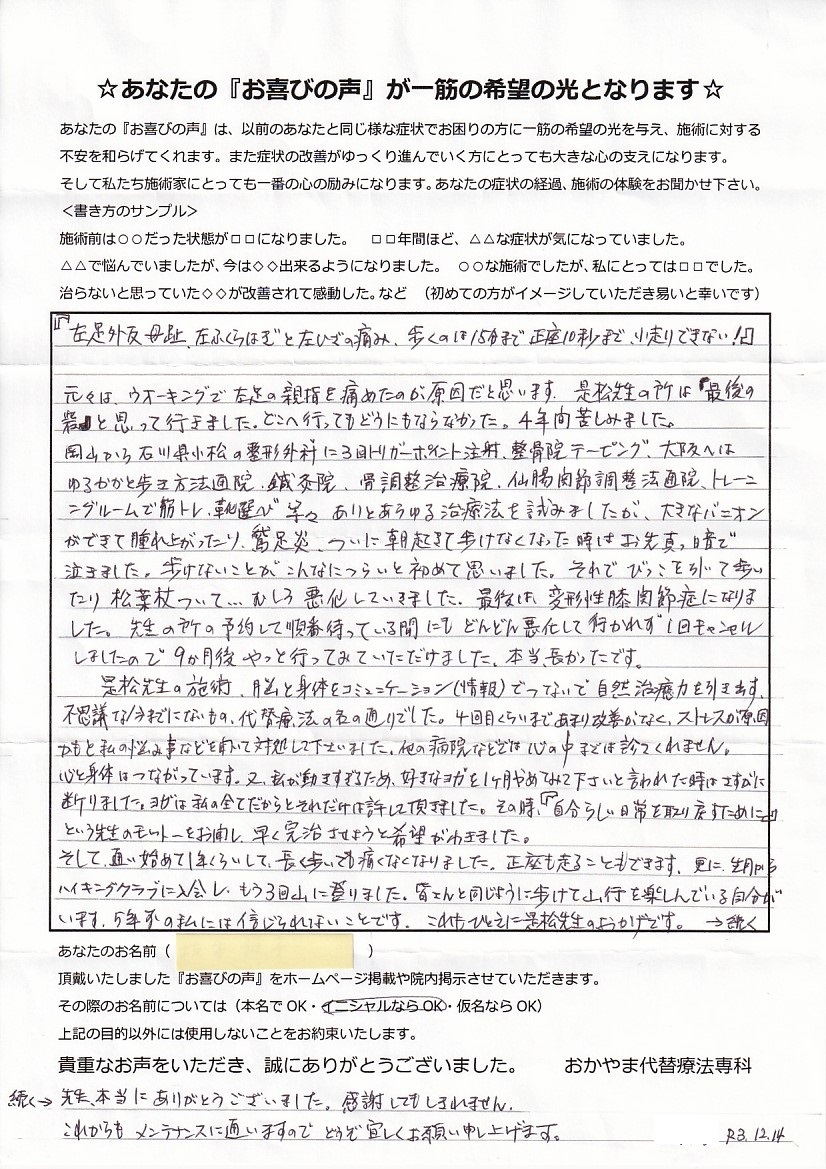 ☆あなたの『お喜びの声』が一筋の希望の光となります☆
あなたの『お喜びの声』は、以前のあなたと同じ様な症状でお困りの方に一筋の希望の光を与え、施術に対する
不安を和らげてくれます。また症状の改善がゆっくり進んでいく方にとっても大きな心の支えになります。
そして私たち施術家にとっても一番の心の励みになります。あなたの症状の経過、施術の体験をお聞かせ下さい。
＜書き方のサンプル＞
施術前は○○だった状態が□□になりました。　□□年間ほど、△△な症状が気になっていました。
△△で悩んでいましたが、今は◇◇出来るようになりました。　○○な施術でしたが、私にとっては□□でした。
治らないと思っていた◇◇が改善されて感動した。など　（初めての方がイメージしていただき易いと幸いです）
『左足外反母趾、左ふくらはぎと左ひざの痛み、歩くのは15分まで正座10秒まで、小走りできない！』
元々は、ウオーキングで左足の親指を痛めたのが原因だと思います。是松先生の所は『最後の
砦』と思って行きました。どこへ行ってもどうにもならなかった。4年間苦しみました。
岡山から石川県小松の整形外科に3回トリガーポイント注射、整骨院テーピング、大阪へは
ゆるかかと歩き方法通院、鍼灸院、骨調整治療院、仙腸関節調整法通院、トレーニ
ングルームで筋トレ、靴選び等々ありとあらゆる治療法を試みましたが、大きなバニオン
ができて腫れ上がったり、鵞足炎、ついに朝起きて歩けなくなった時はお先真っ暗で
泣きました。歩けないことがこんなにつらいと初めて思いました。それでびっこを引いて歩い
たり松葉杖ついて…むしろ悪化していきました。最後は、変形性膝関節症になりま
した。先生の所の予約して順番待っている間にもどんどん悪化して行かれず1回キャンセル
しましたので9か月後やっと行ってみていただけました。本当、長かったです。
是松先生の施術、脳と身体をコミュニケーション（情報）でつないで自然治癒力を引き出す。
不思議な今までにないもの、代替療法の名の通りでした。4回目くらいまであまり改善がなく、ストレスが原因
かもと私の悩み事などを聞いて対処して下さいました。他の病院などでは心の中までは診てくれません。
心と身体はつながっています。又、私が動きすぎるため、好きなヨガを1ヶ月やめてみて下さいと言われた時はさすがに
断りました。ヨガは私の全てだからとそれだけは許して頂きました。その時、『自分らしい日常を取り戻すために』
という先生のモットーをお聞し、早く完治させようと希望がわきました。
そして、通い始めて1年くらいして、長く歩いても痛くなくなりました。正座も走ることもできます。更に、
ハイキングクラブに入会し、もう3回山に登りました。皆さんと同じように歩けて山行を楽しんでいる自分が
います。5年前の私には信じられないことです。これもひとえに是松先生のおかげです。　→続く
あなたのお名前（　　　　　　　　　）
頂戴いたしました『お喜びの声』をホームページ掲載や院内掲示させていただきます。
その際のお名前については（本名でOK・イニシャルならOK・仮名ならOK）
上記の目的以外には使用しないことをお約束いたします。
貴重なお声をいただき、誠にありがとうございました。　　おかやま代替療法専科
続く→ 先生、本当にありがとうございました。感謝してもしきれません。
これからもメンテナンスに通いますのでどうぞ宜しくお願い申し上げます。
R3.12.14